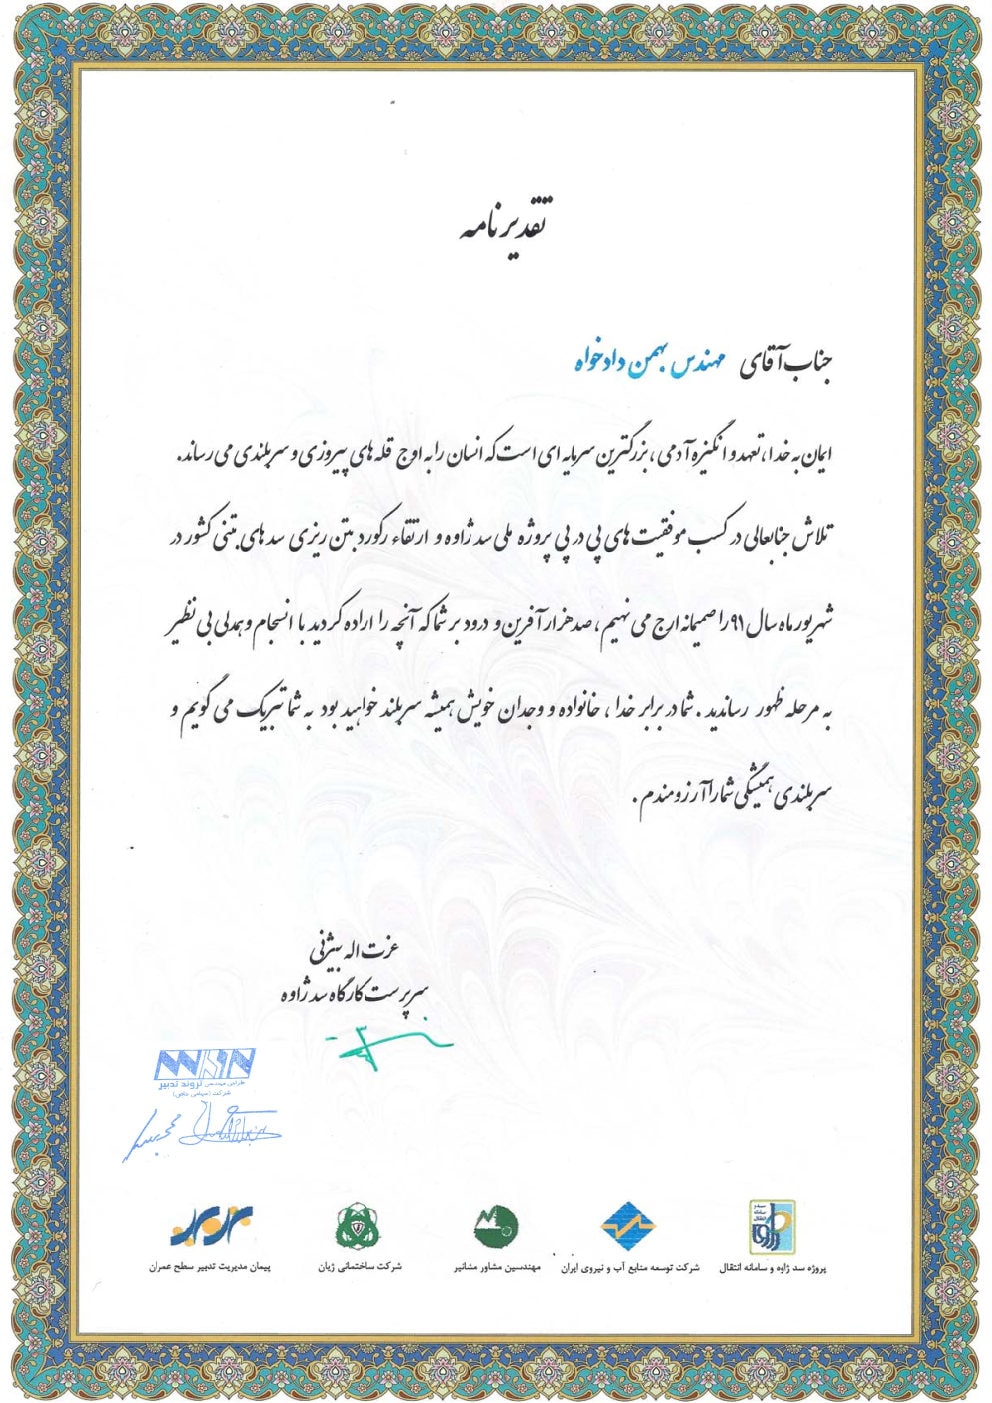 تقدیرنامه
جناب آقای مهندس بهمن دادخواه
ایمان به خدا، تعهد و انگیزه آدمی، بزرگترین سرمایه ای است که انسان را به اوج قله های پیروزی و سربلندی می رساند.
تلاش جنابعالی در کسب موفقیت های پی در پی پروژه ملی سد ژاوه و ارتقاء رکورد بتن ریزی سد های بتنی کشور در
شهریور ماه سال ۹۱ را صمیمانه ارج می نهیم، صد هزار آفرین و درود بر شما که آنچه را اراده کردید با انسجام و همدلی بی نظیر
به مرحله ظهور رساندید. شما در برابر خدا، خانواده و وجدان خویش همیشه سربلند خواهید بود به شما تبریک می گویم و
سربلندی همیشگی شما را آرزومندم.
عزت اله بیژنی
سرپرست کارگاه سد ژاوه
طراحی مهندسی نروند تدبیر
شرکت (سهامی خاص)
سد و
سامانه
انتقال
ژاوه
پروژه سد ژاوه و سامانه انتقال
شرکت توسعه منابع آب و نیروی ایران
مهندسین مشاور مشانیر
شرکت ساختمانی ژیان
پیمان مدیریت تدبیر سطح عمران